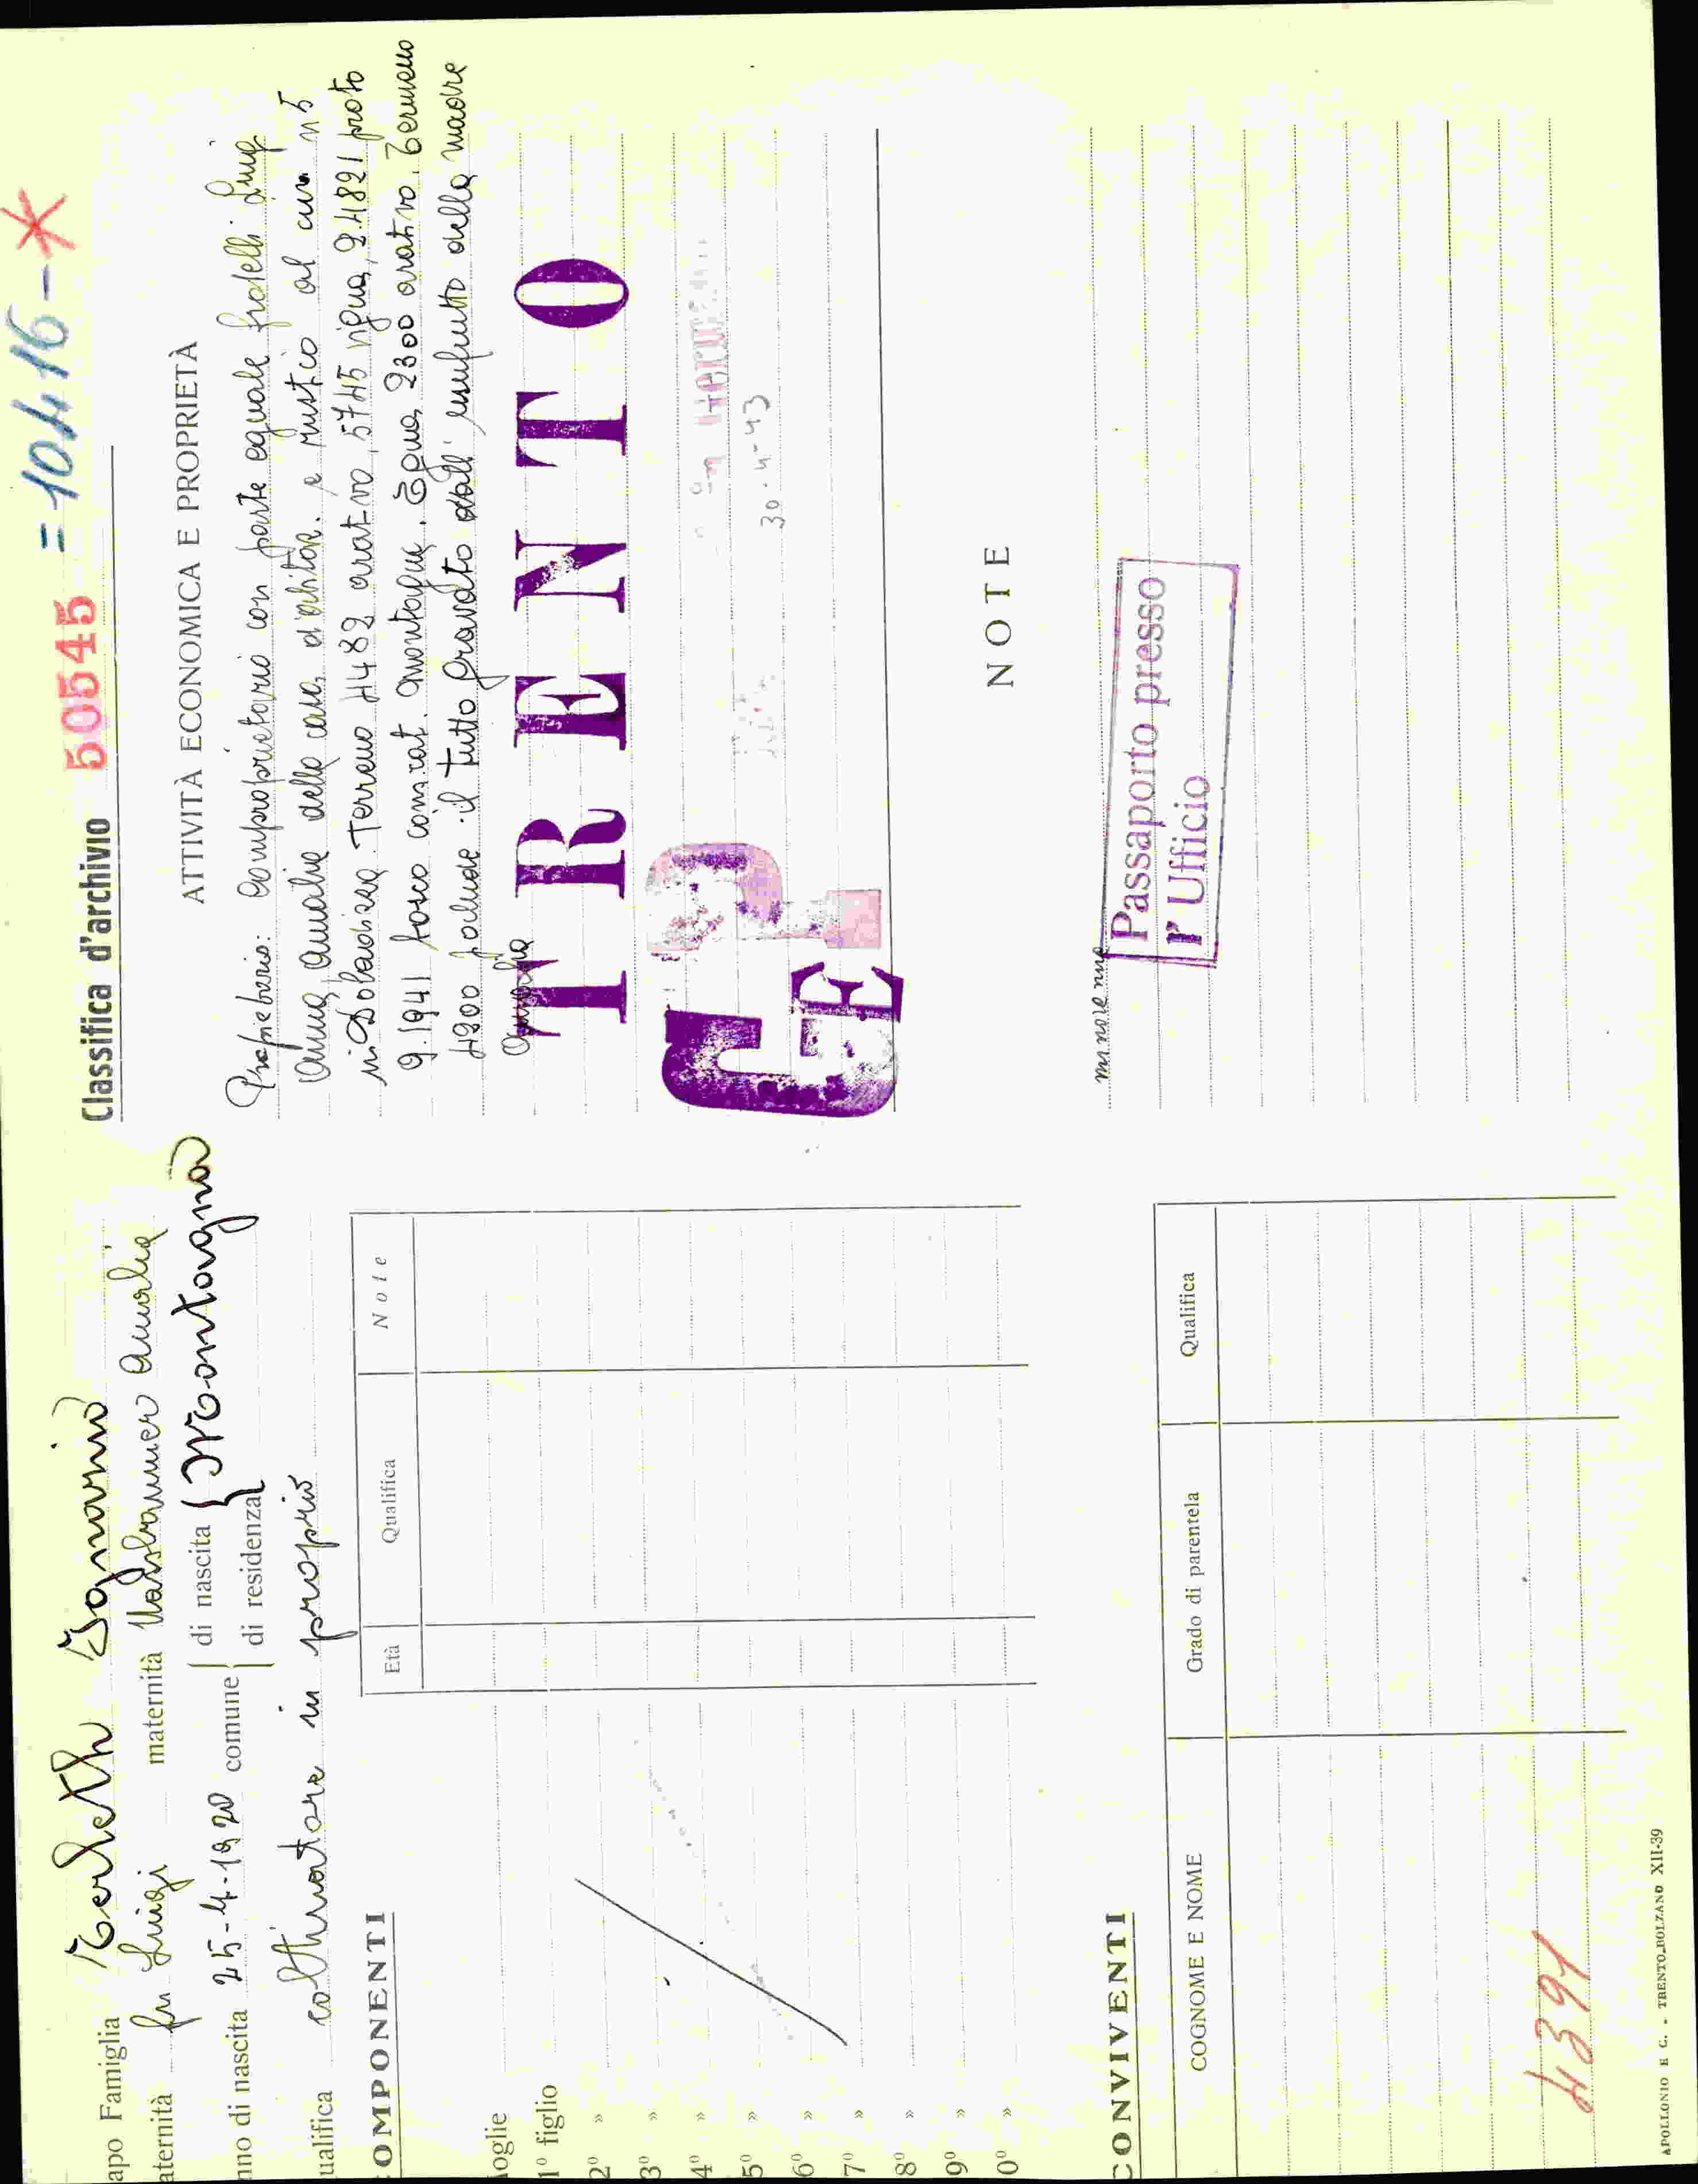 apo Famiglia Terleth Ignazio
aternità fu Luigi maternità Amalia
nno di nascita 25-4-1920 comune { di nascita { Montagna
di residenza
ualifica coltivatore in proprio
COMPONENTI
Età Qualifica Note
oglie
1º figlio
2º »
3º »
4º »
5º »
6º »
7º »
8º »
9º »
0º »
CONVIVENTI
COGNOME E NOME Grado di parentela Qualifica
4391
APOLLONIO E C. - TRENTO-BOLZANO XII-39
Classifica d'archivio 50545 =10416-*
ATTIVITÀ ECONOMICA E PROPRIETÀ
Proprietario: comproprietario con parte eguale fratelli Luigi
Anna Amalia della casa d'abitaz. e rustico al n 5
in Doladizza. Terreno 4482 arativo, 5745 vigna, 24821 prato
9.1941 bosco Montagna. Egna 2300 arativo. Termeno
4200 palude. il tutto gravato dall'usufrutto della madre
Amalia
TRENTO
GE
30-4-43
NOTE
minorenne
Passaporto presso
l'Ufficio